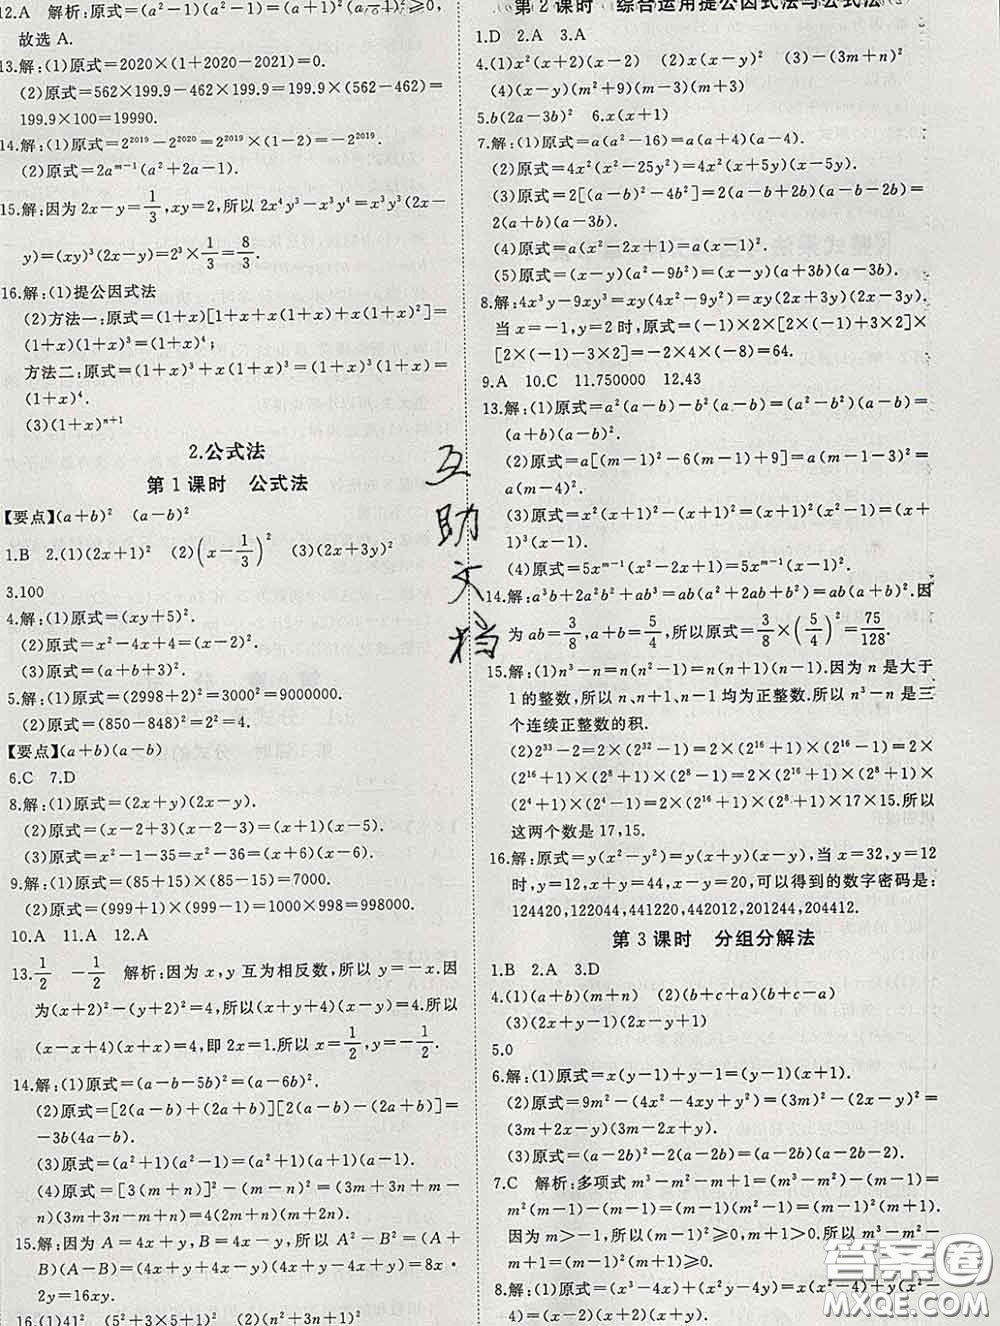 12.A 解析:原式=(a²+1)²(a²-1)²=(a+1)²(a-1)²(a²+1)²≥0,
故选 A.
13.解:(1)原式=2020×(1+2020-2021)=0.
(2)原式=562×199.9-462×199.9=199.9×(562-462)=
199.9×100=19990.
14.解:(1)原式=2²⁰¹⁹-2²⁰²⁰=2²⁰¹⁹×(1-2)=-2²⁰¹⁹.
(2)原式=2aᵐ⁻¹(a²+2a-1).
15.解:因为 2x-y=1/3,xy=2,所以 2x⁴y³-x³y⁴=x³y³(2x-
y)=(xy)³(2x-y)=2³×1/3=8/3.
16.解:(1)提公因式法
(2)方法一:原式=(1+x)[1+x+x(1+x)+x(1+x)²]=
(1+x)(1+x)³=(1+x)⁴;
方法二:原式=(1+x)³+x(1+x)³=(1+x)³(1+x)=
(1+x)⁴.
(3)(1+x)ⁿ⁺¹
2.公式法
第 1 课时 公式法
【要点】(a+b)² (a-b)²
1.B 2.(1)(2x+1)² (2)(x-1/3)² (3)(2x+3y)²
3.100
4.解:(1)原式=(xy+5)².
(2)原式=x²-4x+4=(x-2)².
(3)原式=(a+b-1)².
5.解:(1)原式=(2998+2)²=3000²=9000000.
(2)原式=(850-848)²=2²=4.
【要点】(a+b)(a-b)
6.C 7.D
8.解:(1)原式=(2x+y)(2x-y).
(2)原式=(x-2+3)(x-2-3)=(x+1)(x-5).
(3)原式=x²-1-35=x²-36=(x+6)(x-6).
9.解:(1)原式=(85+15)×(85-15)=7000.
(2)原式=(999+1)×(999-1)=1000×998=998000.
10.A 11.A 12.A
13.1/2 -1/2 解析:因为 x,y 互为相反数,所以 y=-x.因
为(x+2)²-(y+2)²=4,所以(x+y+4)(x-y)=4.所以
(x-x+4)(x+x)=4,即 2x=1.所以 x=1/2,y=-1/2.
14.解:(1)原式=(a-b-5b)²=(a-6b)².
(2)原式=[2(a-b)+(2a+b)][2(a-b)-(2a+b)]=
-3b(4a-b).
(3)原式=(a²+1)(a²-1)=(a²+1)(a+1)(a-1).
(4)原式=[3(m+n)]²-(m-n)²=(3m+3n+m-
n)(3m+3n-m+n)=4(2m+n)(m+2n).
15.解:因为 A=4x+y,B=4x-y,所以 A²-B²=(A+
B)(A-B)=(4x+y+4x-y)(4x+y-4x+y)=8x·
2y=16xy.
16.(1)41² (5²+3×5+1)² (2)(n²+3n+1)²
第 2 课时 综合运用提公因式法与公式法
1.D 2.A 3.A
4.(1)x²(x+2)(x-2) (2)x(x-y)² (3)-(3m+n)²
(4)(x-y)(m²+9)(m-3)(m+3)
5.b(2a-3b)² 6.x(x+1)
7.解:(1)原式=a(a²-16)=a(a+4)(a-4).
(2)原式=4x²(x²-25y²)=4x²(x+5y)(x-5y).
(3)原式=2[(a-b)²-4b²]=2(a-b+2b)(a-b-2b)=
2(a+b)(a-3b).
(4)原式=a(x²-2x+1)=a(x-1)².
(5)原式=(x-y)(a²-9b²)=(x-y)(a+3b)(a-3b).
8.解:4x³y-9xy³=xy(4x²-9y²)=xy(2x+3y)(2x-3y).
当 x=-1,y=2 时,原式=(-1)×2×[2×(-1)+3×2]×
[2×(-1)-3×2]=-2×4×(-8)=64.
9.A 10.C 11.750000 12.43
13.解:(1)原式=a²(a-b)-b²(a-b)=(a²-b²)(a-b)=
(a+b)(a-b)².
(2)原式=a[(m-1)²-6(m-1)+9]=a(m-1-3)²=
a(m-4)².
(3)原式=x²(x+1)²-(x+1)²=(x+1)²(x²-1)=(x+
1)³(x-1).
(4)原式=5xᵐ⁻¹(x²-2x+1)=5xᵐ⁻¹(x-1)².
14.解:a³b+2a²b²+ab³=ab(a²+2ab+b²)=ab(a+b)².因
为 ab=3/8,a+b=5/4,所以原式=3/8×(5/4)²=75/128.
15.解:(1)n³-n=n(n²-1)=n(n+1)(n-1).因为 n 是大于
1 的整数,所以 n、n+1、n-1 均为正整数.所以 n³-n 是三
个连续正整数的积.
(2)2³³-2=2×(2³²-1)=2×(2¹⁶+1)×(2¹⁶-1)=2×
(2¹⁶+1)×(2⁸+1)×(2⁸-1)=2×(2¹⁶+1)×(2⁸+1)×
(2⁴+1)×(2⁴-1)=2×(2¹⁶+1)×(2⁸+1)×17×15.所以
这两个数是 17,15.
16.解:原式=y(x²-y²)=y(x+y)(x-y),当 x=32,y=12
时,y=12,x+y=44,x-y=20,可以得到的数字密码是:
124420,122044,441220,442012,201244,204412.
第 3 课时 分组分解法
1.B 2.A 3.D
4.(1)(a+b)(m+n) (2)(b+c+a)(b+c-a)
(3)(2x+y-1)(2x-y+1)
5.0
6.解:(1)原式=x(y-1)+y-1=(y-1)(x+1).
(2)原式=9m²-(4x²-4xy+y²)=(3m)²-(2x-y)²=
(3m+2x-y)(3m-2x+y).
(3)原式=(a-b)²-(2c)²=(a-b+2c)(a-b-2c).
7.C 解析:多项式 m³-m²-m+1=(m³-m²)-(m-1)=
m²(m-1)-(m-1)=(m-1)(m²-1)=(m-1)²(m+1).
因为 m>-1,所以(m-1)²≥0,m+1>0.所以 m³-m²-
m+1=(m-1)²(m+1)≥0.
8.解:(1)原式=(x³-4x)+(x²y-4y)=x(x²-4)+y(x²-
4)=(x-2)(x+2)(x+y).
互助文档
答案圈
MXQE.COM